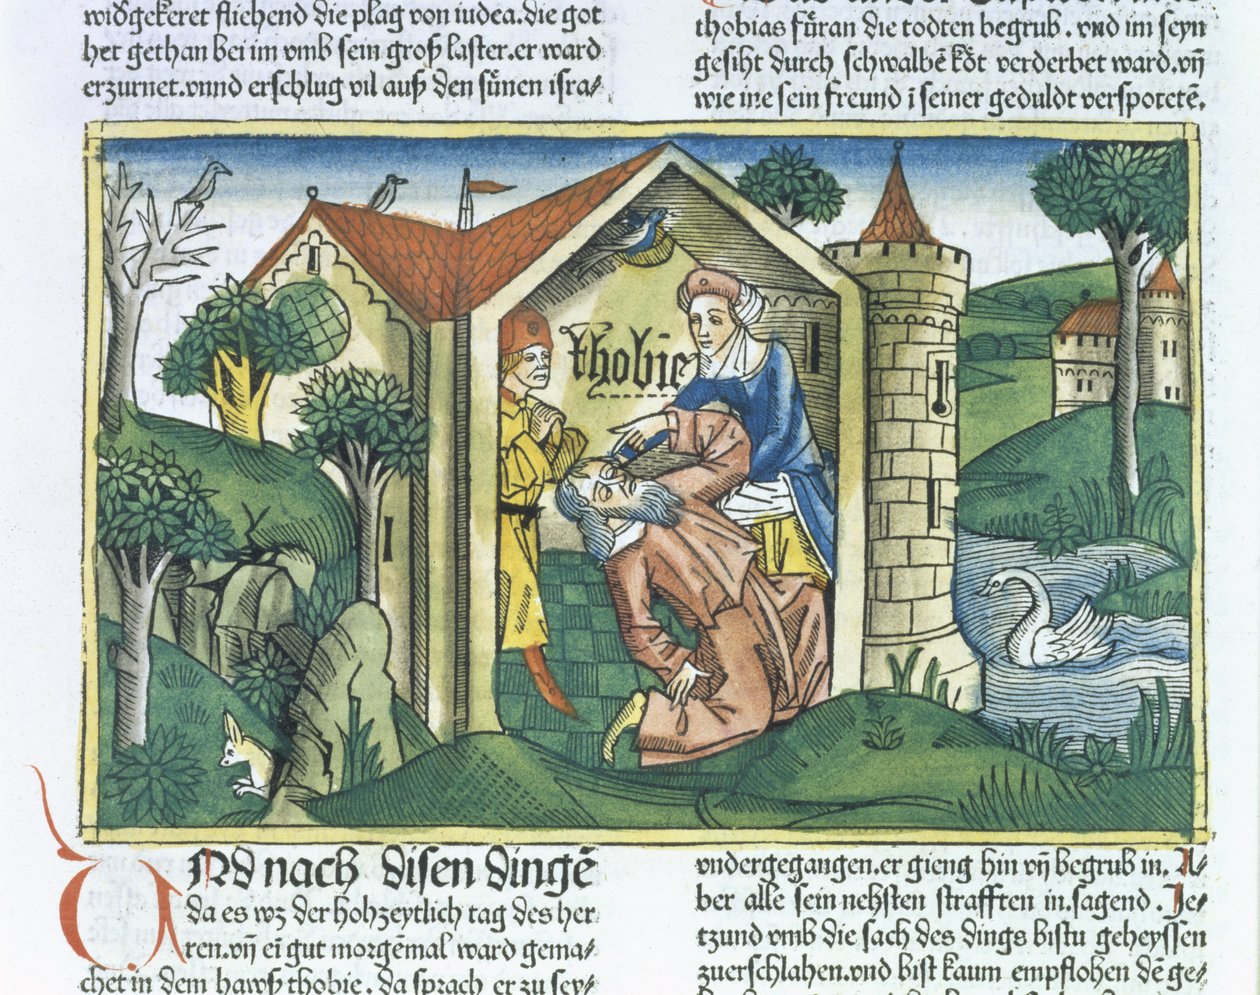 widgekeret fliehend die plag von iudea.die got
het gethan bei im vmb sein groß laster.er ward
erzurnet.vnnd erschlug vil auß den sünen isra/
thobias füran die todten begrub. vnd im seyn
gesiht durch schwalbē kot verderbet ward.vñ
wie ine sein freund i seiner geduldt verspotetē.
thobie
VNd nach disen dingē
da es wz der hohzeytlich tag des her
ren.vñ ei gut morgēmal ward gema/
chet in dem hawß thobie. da sprach er zu sey/
vndergegangen.er gieng hin vñ begrub in. A/
ber alle sein nehsten strafften in.sagend. Je/
tzund vmb die sach des dings bistu geheyssen
zuerschlahen.vnd bist kaum empflohen dē ge/